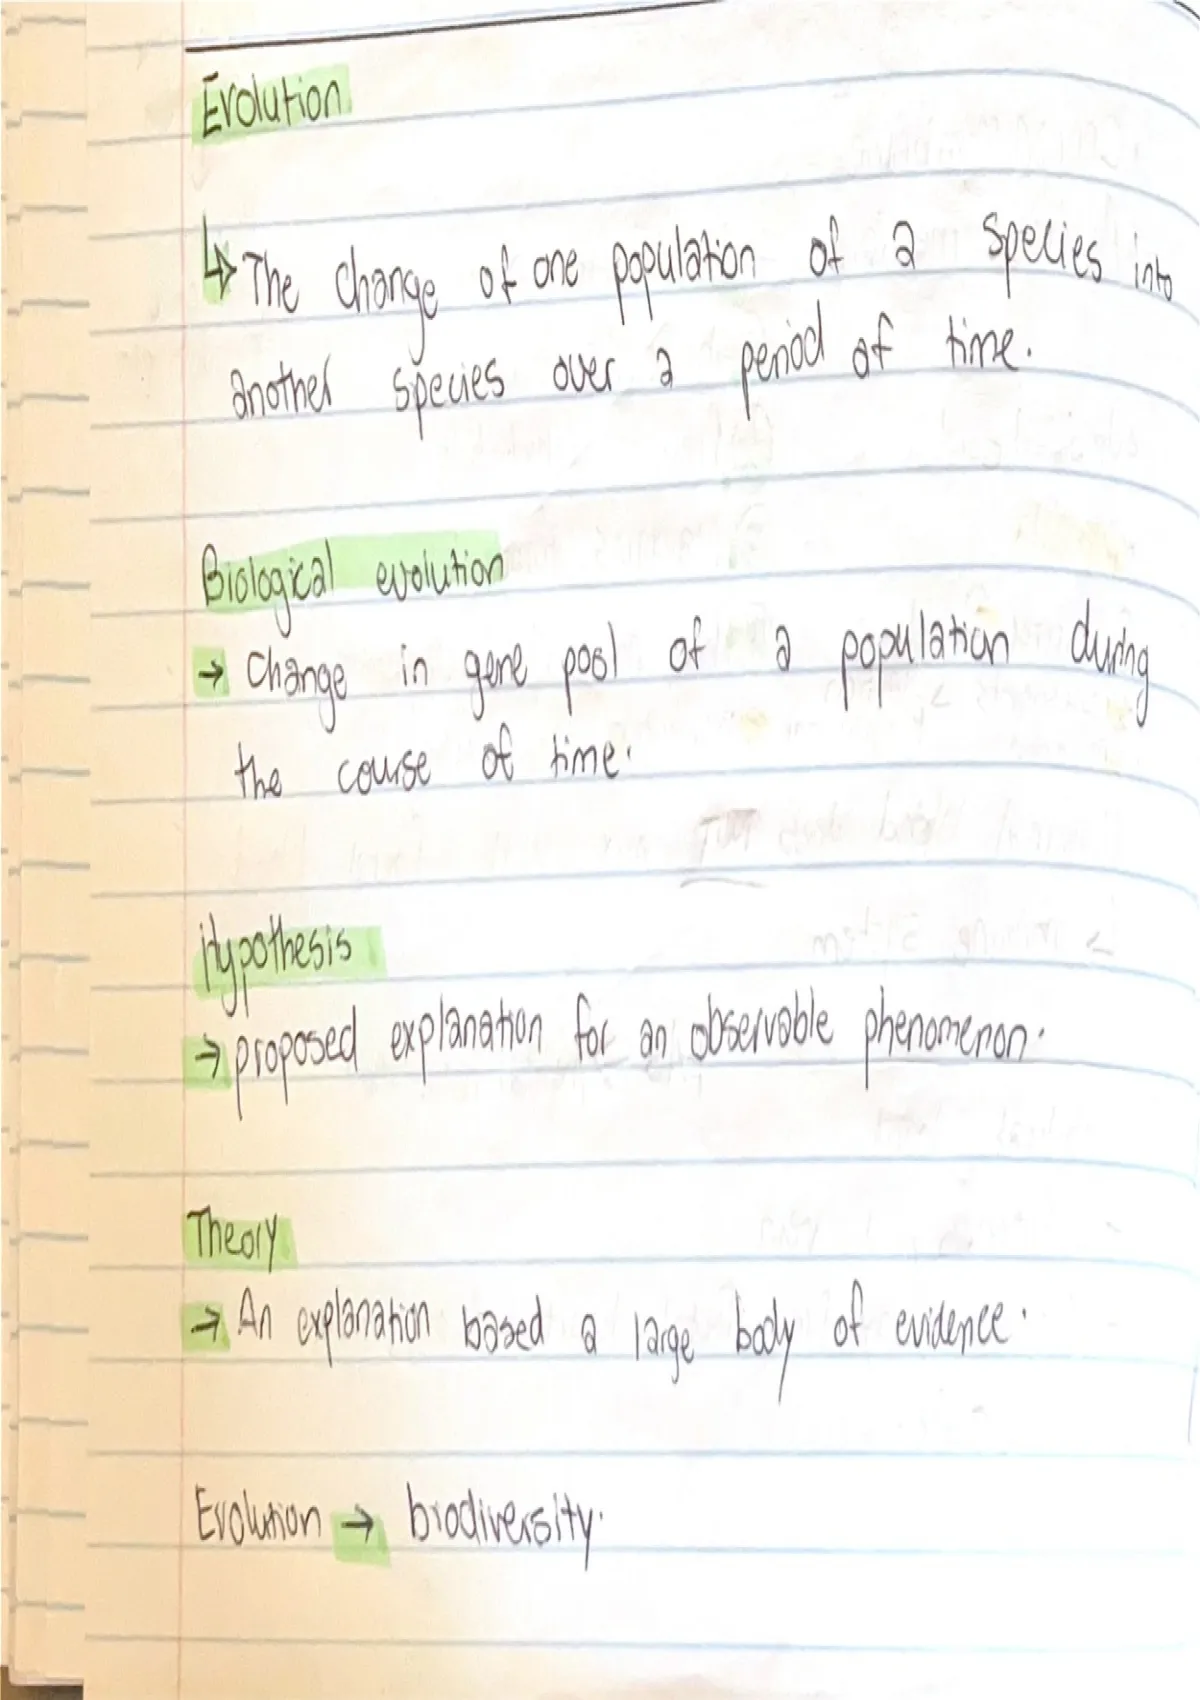 Evolution
↳ The change of one population of a species into
another species over a period of time.
Biological evolution
→ Change in gene pool of a population during
the course of time.
Hypothesis
→ proposed explanation for an observable phenomenon.
Theory
→ An explanation based a large body of evidence.
Evolution → biodiversity.